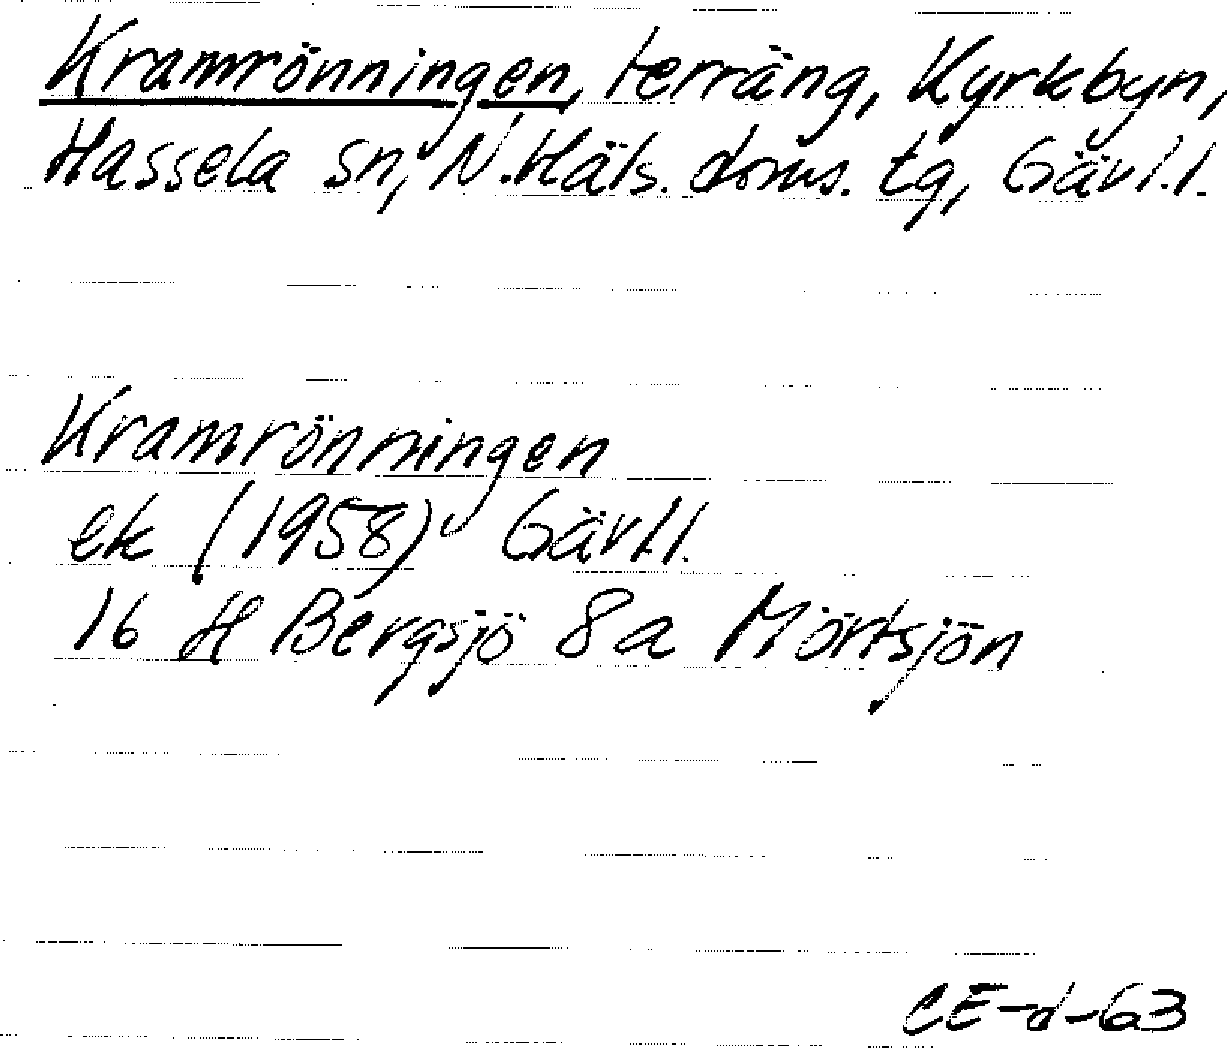 Kramrönningen, terräng, Kyrkbyn,
Hassela sn, N. Häls. doms. tg, Gävl.l.
Kramrönningen
ek (1958) Gävl.l.
16 H Bergsjö 8a Mörtsjön
CE-d-63